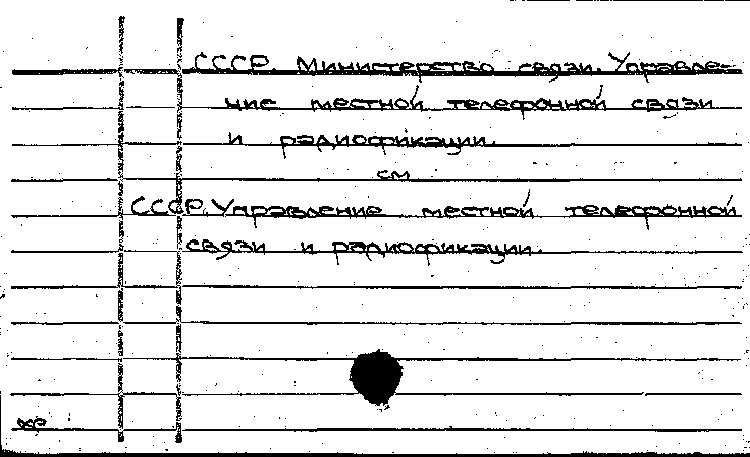 СССР. Министерство связи. Управле-
ние местной телефонной связи
и радиофикации.
см
СССР. Управление местной телефонной
связи и радиофикации.